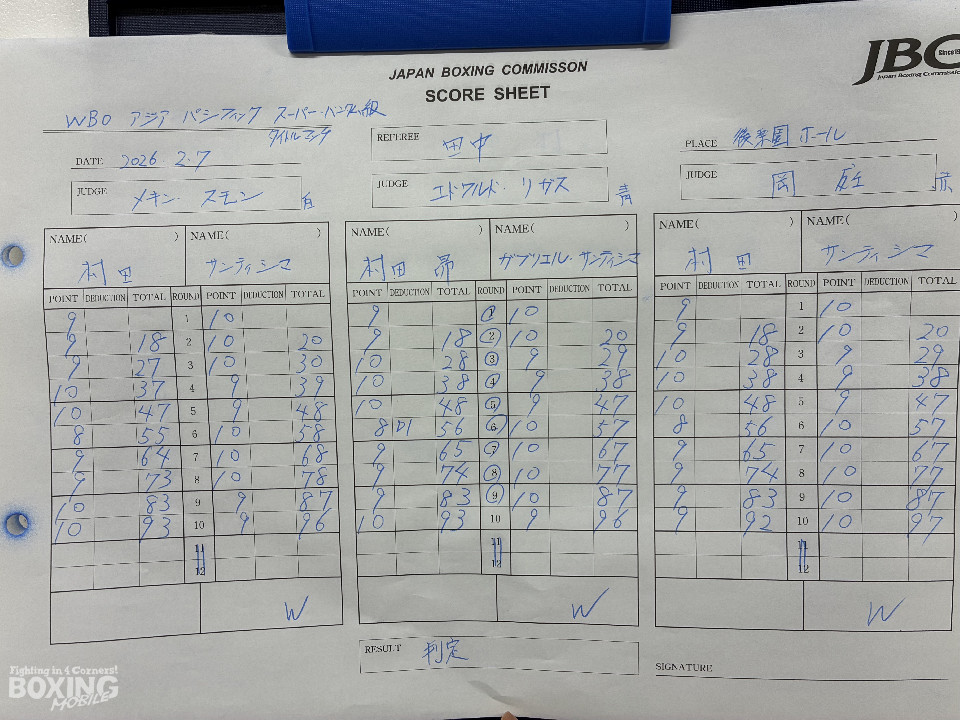 JBC
Since19
Japan Boxing Commissio
JAPAN BOXING COMMISSON
SCORE SHEET
WBO アジア パシフィック スーパー・バンタム級
タイトルマッチ
DATE 2026 2.7
REFEREE 田中
PLACE 後楽園 ホール
JUDGE メキン・スモン 白
JUDGE エドワルド・リガス 青
JUDGE 岡 庭 赤
NAME( ) NAME( ) NAME( ) NAME( ) NAME( ) NAME( )
村田 サンティシマ 村田 昴 ガブリエル・サンティシマ 村田 サンティシマ
POINT DEDUCTION TOTAL ROUND POINT DEDUCTION TOTAL POINT DEDUCTION TOTAL ROUND POINT DEDUCTION TOTAL POINT DEDUCTION TOTAL ROUND POINT DEDUCTION TOTAL
9 1 10 9 1 10 9 1 10
9 18 2 10 20 9 18 2 10 20 9 18 2 10 20
9 27 3 10 30 10 28 3 9 29 10 28 3 9 29
10 37 4 9 39 10 38 4 9 38 10 38 4 9 38
10 47 5 9 48 10 48 5 9 47 10 48 5 9 47
8 55 6 10 58 8 D1 56 6 10 57 8 56 6 10 57
9 64 7 10 68 9 65 7 10 67 9 65 7 10 67
9 73 8 10 78 9 74 8 10 77 9 74 8 10 77
10 83 9 9 87 9 83 9 10 87 9 83 9 10 87
10 93 10 9 96 10 93 10 9 96 9 92 10 10 97
11 11 11
12 12 12
W W W
RESULT 判定
SIGNATURE
Fighting in 4 Corners!
BOXING
MOBILE